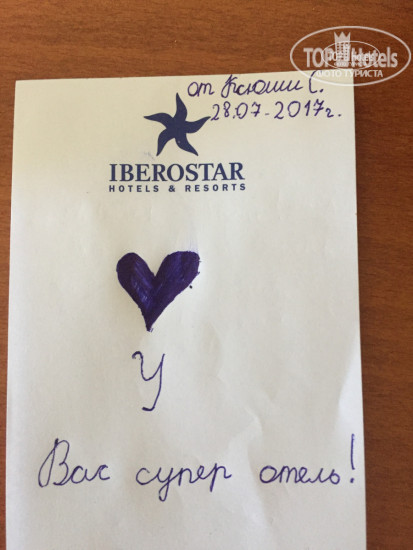 TOPHotels
ФОТО ТУРИСТА
от Ксюши С.
28.07.2017г.
IBEROSTAR
HOTELS & RESORTS
У
Вас супер отель!